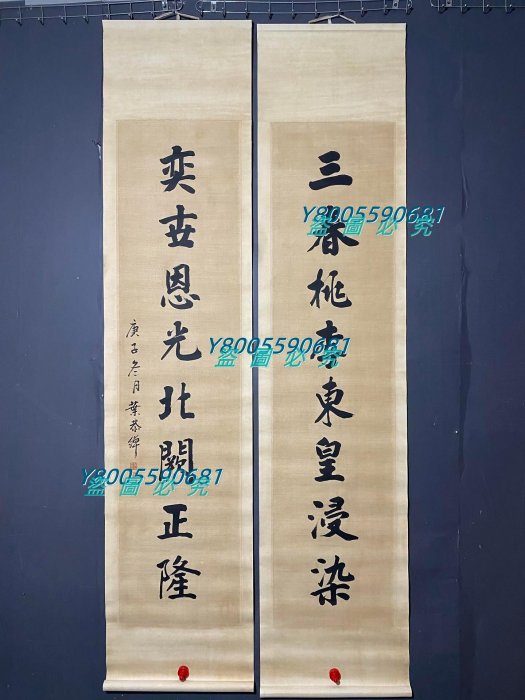 三春桃李東皇浸染
奕世恩光北闕正隆
庚子冬月 葉恭綽
Y8005590681
盜圖必究
Y8005590681
盜圖必究
Y8005590681
盜圖必究